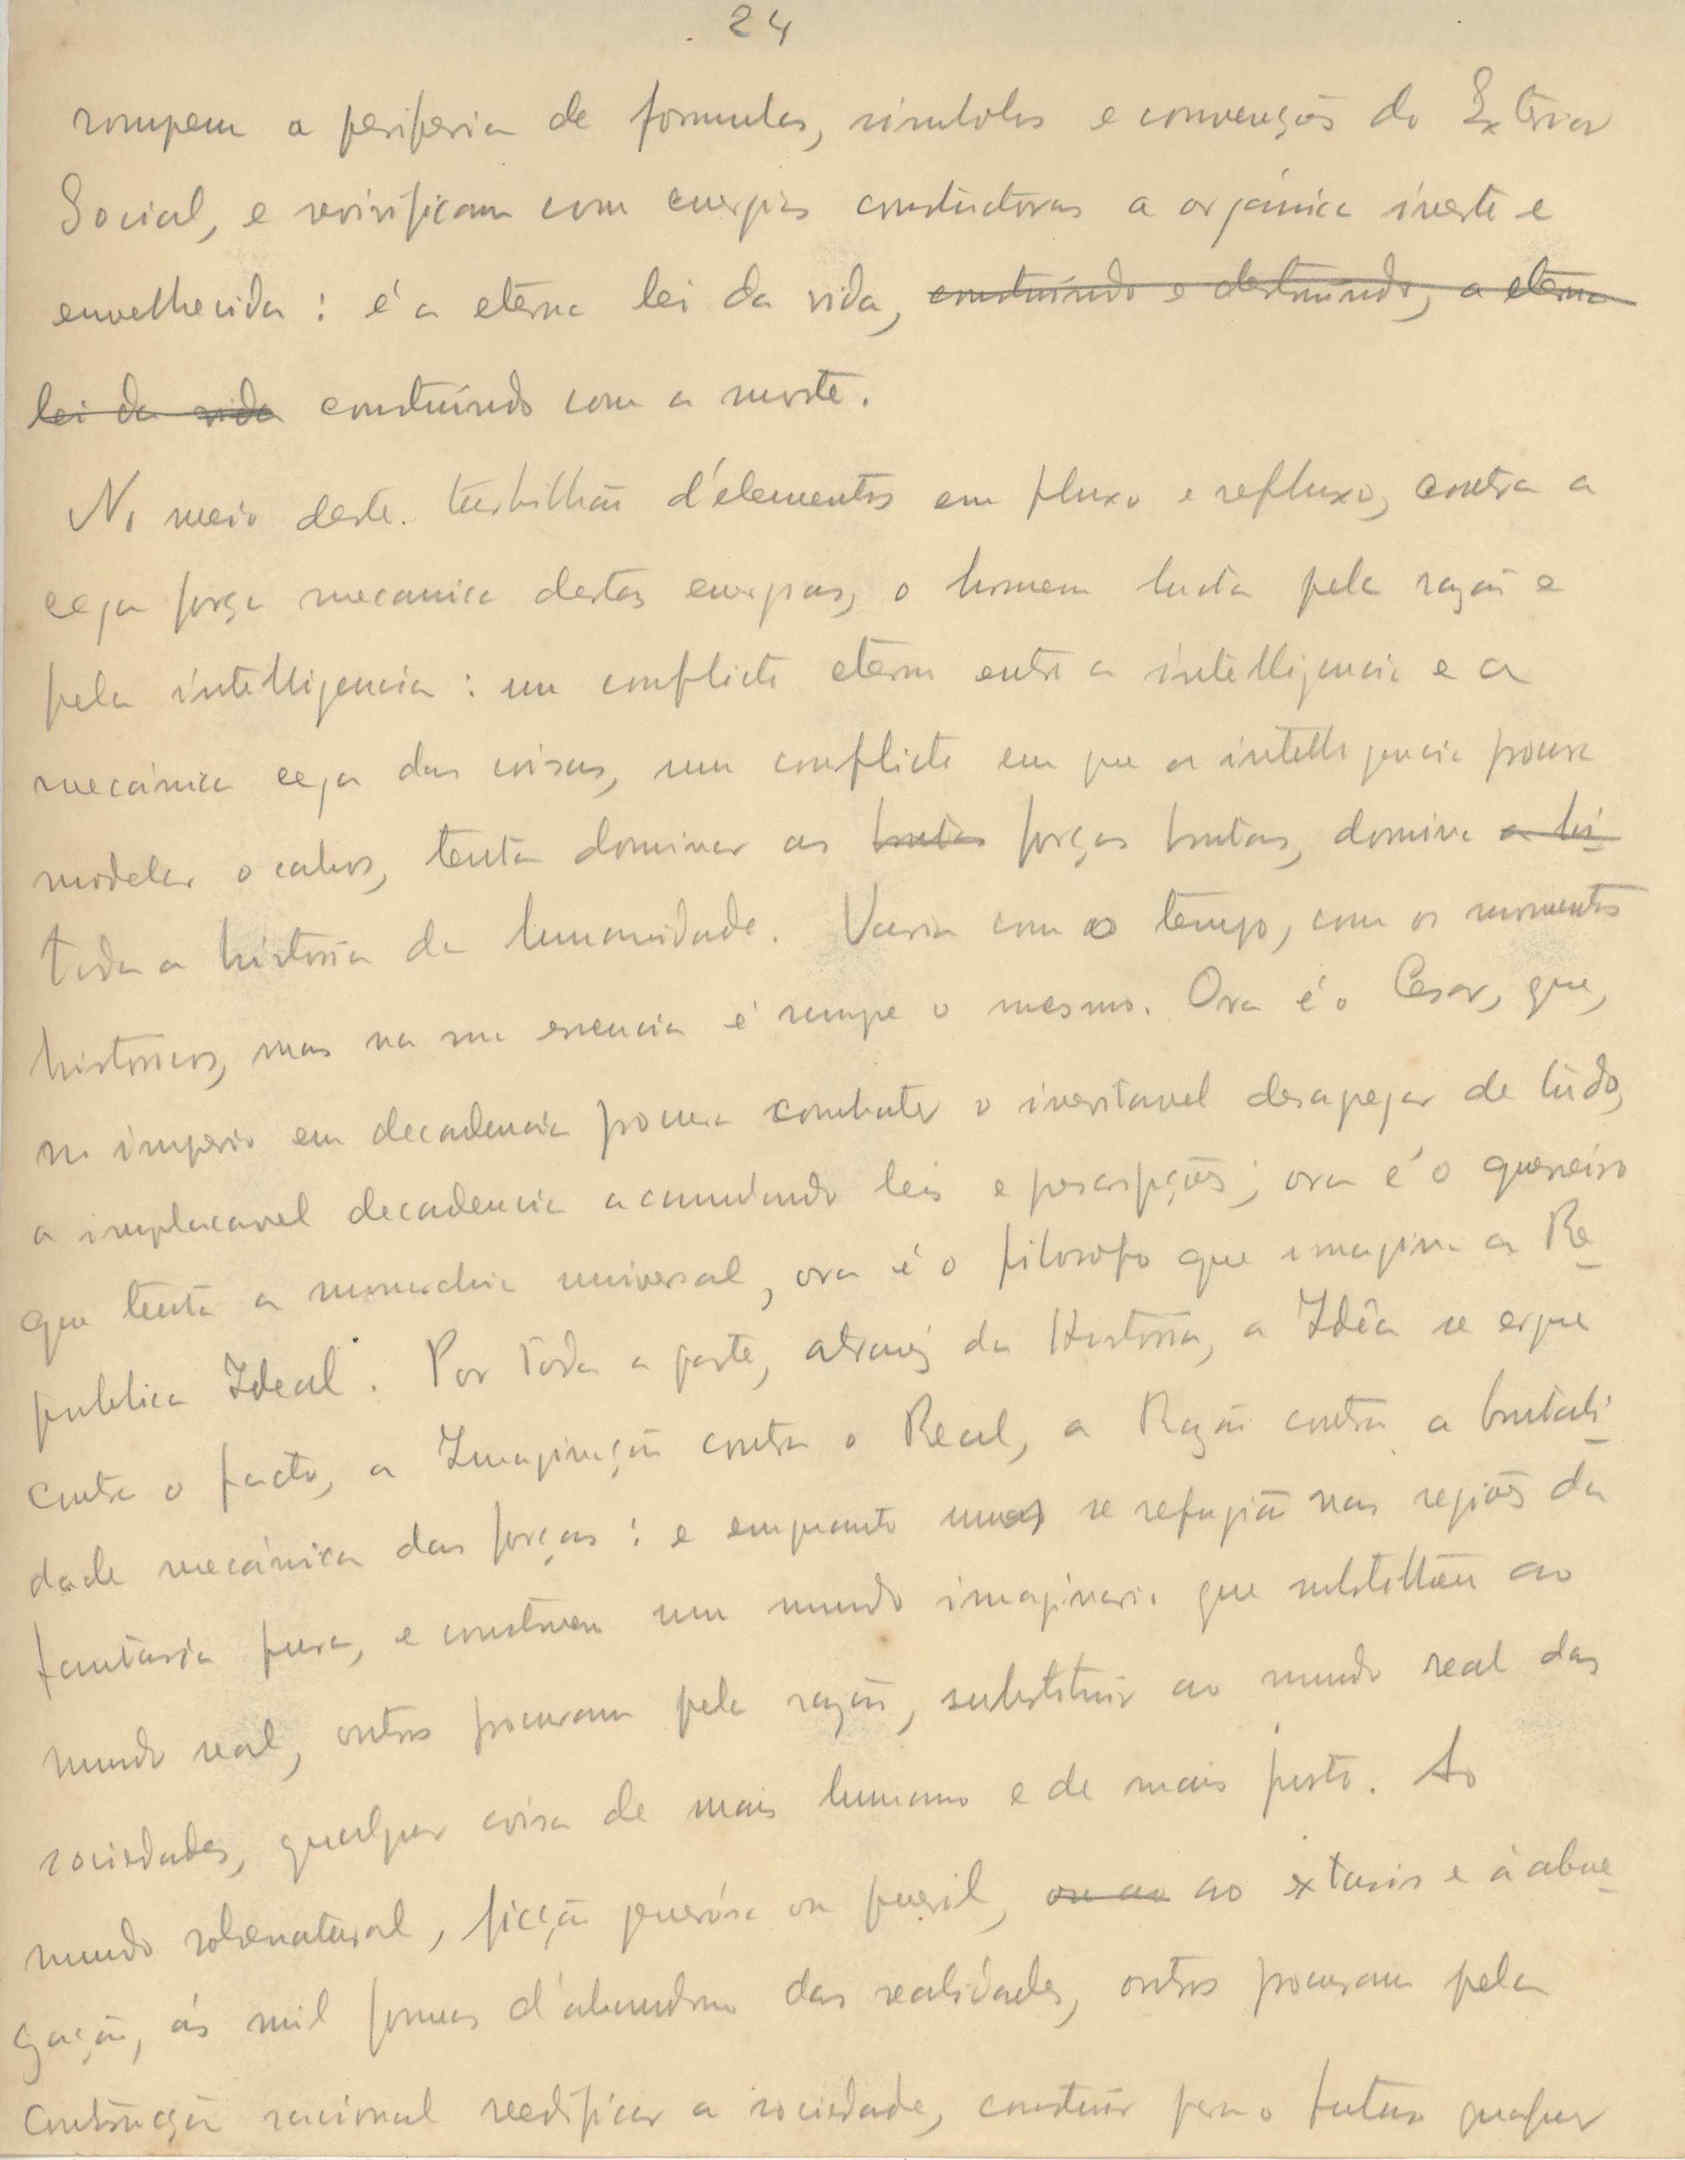 24
rompem a periferia de formulas, simbolos e convenções do Exterior
Social, e revivificam com energias constructoras a orgánica inerte e
envelhecida : é a eterna lei da vida, construindo e destruindo, a eterna
lei da vida construindo com a morte.
No meio deste turbilhão d'elementos em fluxo e refluxo, contra a
cega força mecanica destas energias, o homem lucta pela razão e
pela intelligencia : um conflicto eterno entre a intelligencia e a
mecánica cega das coisas, um conflicto em que a intelligencia procura
modelar o cahos, tenta dominar as brutas forças brutas, domina a hi
toda a historia da humanidade. Varia com o tempo, com os momentos
historicos, mas na sua essencia é sempre o mesmo. Ora é o Cesar, que,
no imperio em decadencia procura combater o inevitavel desapegar de tudo,
a implacavel decadencia acumulando leis e prescripções; ora é o guerreiro
que tenta a monarchia universal, ora é o filosofo que imagina a Re
publica Ideal. Por toda a parte, através da Historia, a Idêa se ergue
contra o facto, a Imaginação contra o Real, a Razão contra a brutali
dade mecánica das forças : e emquanto uns se refugiã nas regiões da
fantasia pura, e constroem um mundo imaginario que substituem ao
mundo real, outros procuram pela razão, substituir ao mundo real das
sociedades, qualquer coisa de mais humano e de mais justo. Ao
mundo sobrenatural, ficção generósa ou pueril, ou ao ao extasis e á abne
gação, ás mil formas d'abandono das realidades, outros procuram pela
construcção racional reedificar a sociedade, construir para o futuro qualquer